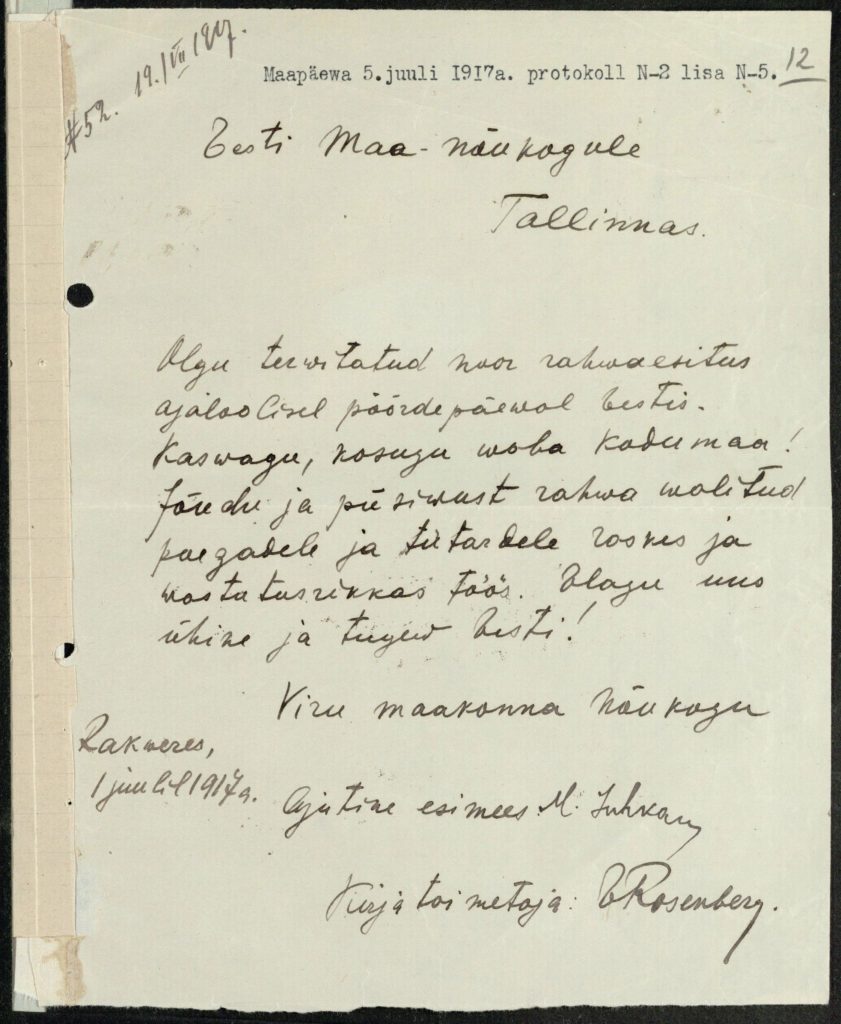 #52. 19./VII 1917.
Maapäewa 5.juuli 1917a. protokoll N-2 lisa N-5.
12
Eesti Maa-nõukogule
Tallinnas.
Olgu terwitatud noor rahwaesitus
ajaloolisel pöördepäewal Eestis.
Kaswagu, kosugu waba kodumaa!
Jõudu ja püsiwust rahwa walitud
poegadele ja tütardele raskes ja
wastutusrikkas töös. Elagu uus
ühine ja tugew Eesti!
Viru maakonna nõukogu
Rakweres,
1 juulil 1917a.
Ajutine esimees: M. Juhkam
Kirjatoimetaja: E Rosenberg.